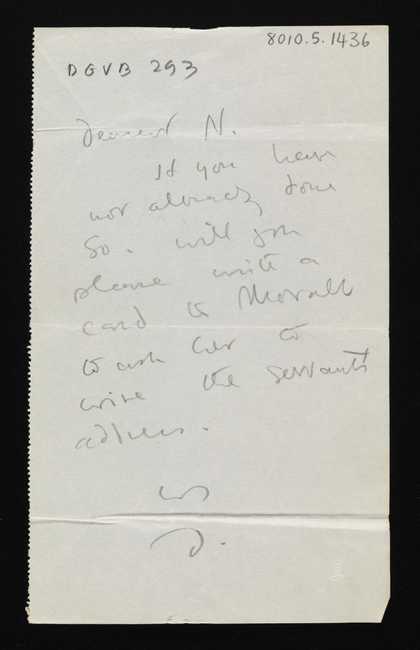 8010.5.1436
DGVB 293
Dearest N.
If you have
not already done
so. will you
please write a
card to Morall
to ask her to
wire the servants
address.
D.